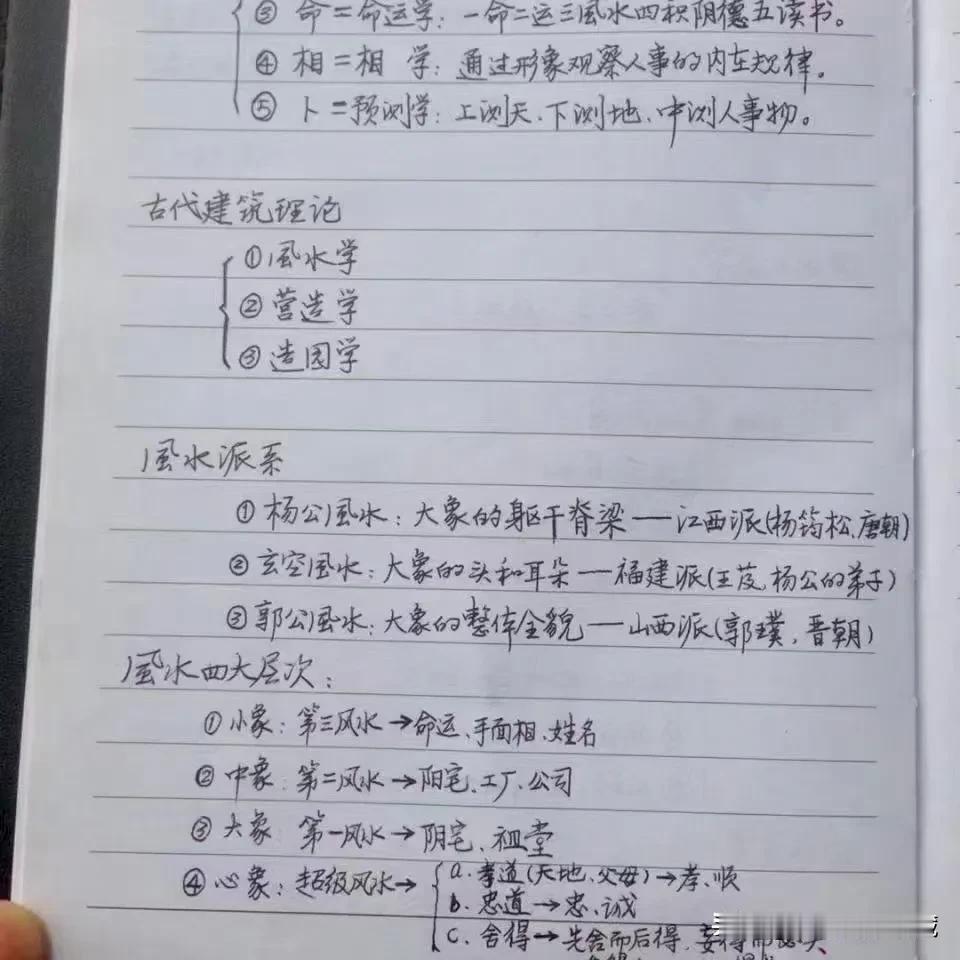 ③ 命=命运学:一命二运三風水四积阴德五读书。
④ 相=相 学:通过形象观察人事的内在规律。
⑤ 卜=预测学:上测天、下测地、中测人事物。
古代建筑理论
①風水学
②营造学
③造园学
風水派系
①杨公風水:大象的躯干脊梁——江西派(杨筠松,唐朝)
②玄空風水:大象的头和耳朵——福建派(王芨,杨公的弟子)
③郭公風水:大象的整体全貌——山西派(郭璞,晋朝)
風水四大层次:
①小象:第三风水→命运、手面相、姓名
②中象:第二风水→阳宅、工厂、公司
③大象 第一风水→阴宅、祖堂
④心象:超级风水→
a.孝道(天地、父母)→孝、顺
b.忠道→忠、诚
c.舍得→先舍而后得,